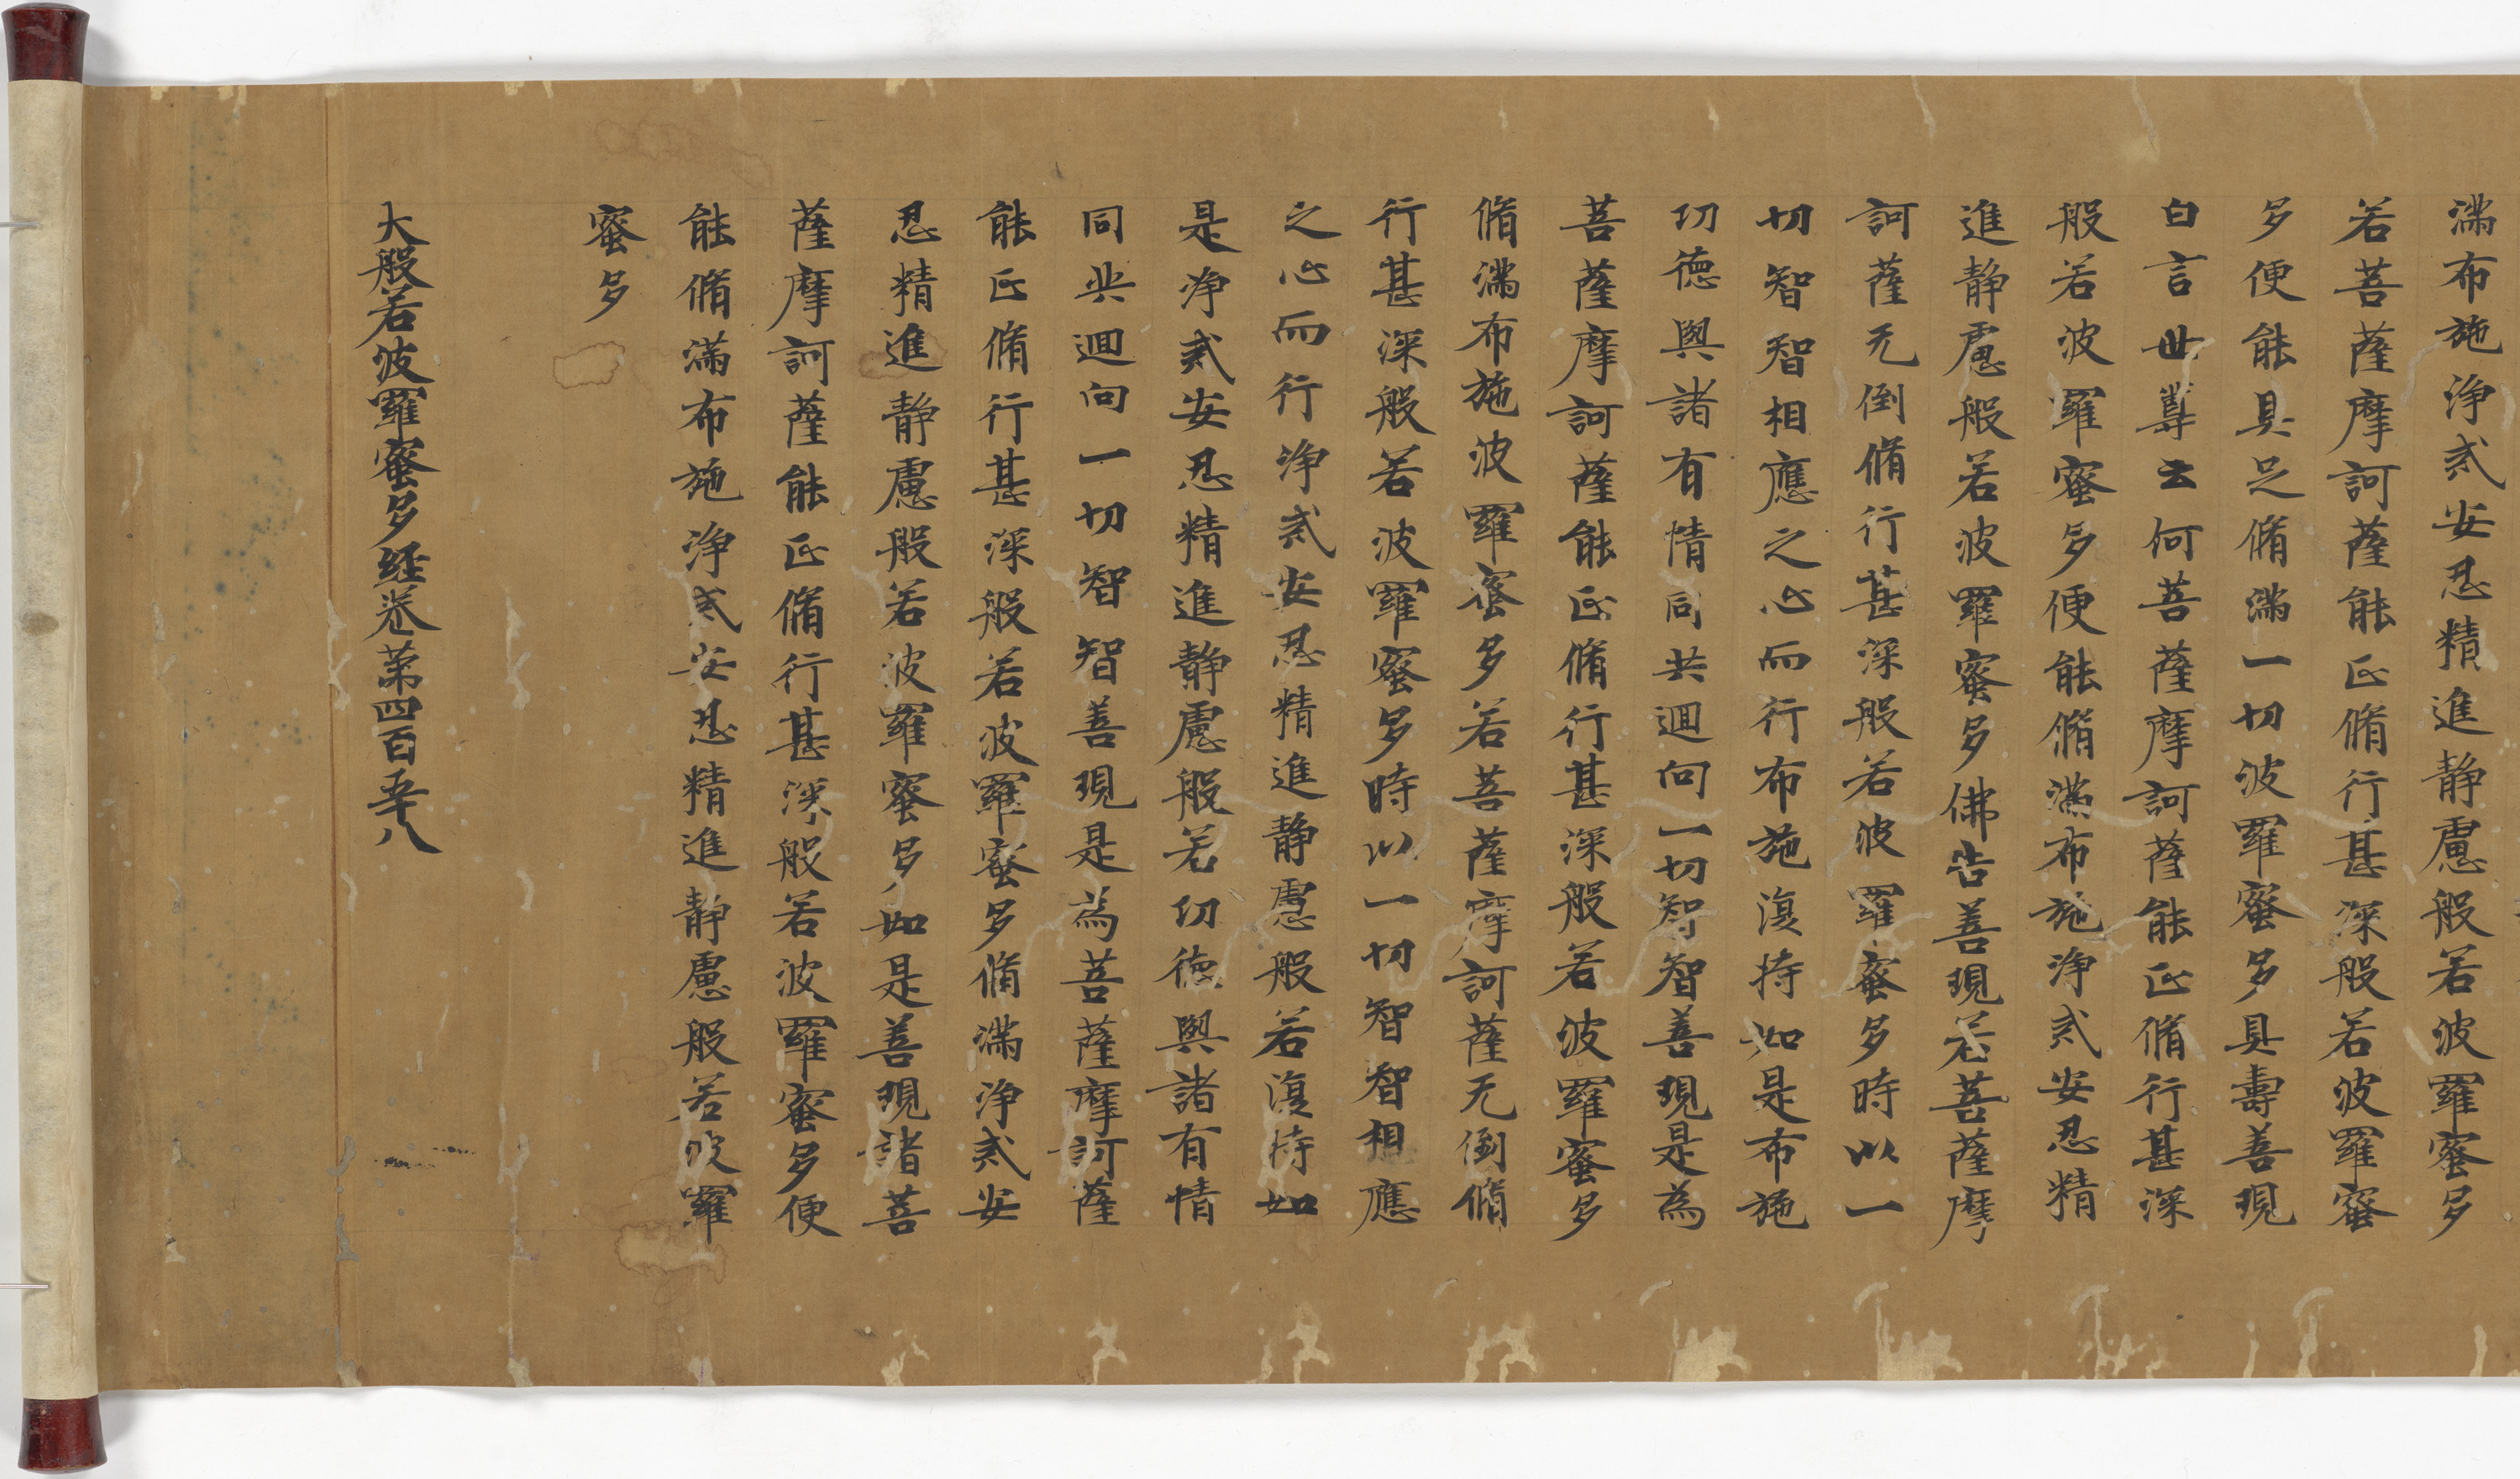 滿布施淨貳安忍精進靜慮般若波羅蜜多
若菩薩摩訶薩能正脩行甚深般若波羅蜜
多便能具足脩滿一切波羅蜜多具壽善現
白言世尊云何菩薩摩訶薩能正脩行甚深
般若波羅蜜多便能脩滿布施淨貳安忍精
進靜慮般若波羅蜜多佛告善現若菩薩摩
訶薩无倒脩行甚深般若波羅蜜多時以一
切智智相應之心而行布施復持如是布施
功德與諸有情同共迴向一切智智善現是為
菩薩摩訶薩能正脩行甚深般若波羅蜜多
脩滿布施波羅蜜多若菩薩摩訶薩无倒脩
行甚深般若波羅蜜多時以一切智智相應
之心而行淨貳安忍精進靜慮般若復持如
是淨貳安忍精進靜慮般若功德與諸有情
同共迴向一切智智善現是為菩薩摩訶薩
能正脩行甚深般若波羅蜜多脩滿淨貳安
忍精進靜慮般若波羅蜜多如是善現諸菩
薩摩訶薩能正脩行甚深般若波羅蜜多便
能脩滿布施淨貳安忍精進靜慮般若波羅
蜜多
大般若波羅蜜多経卷苐四百五十八